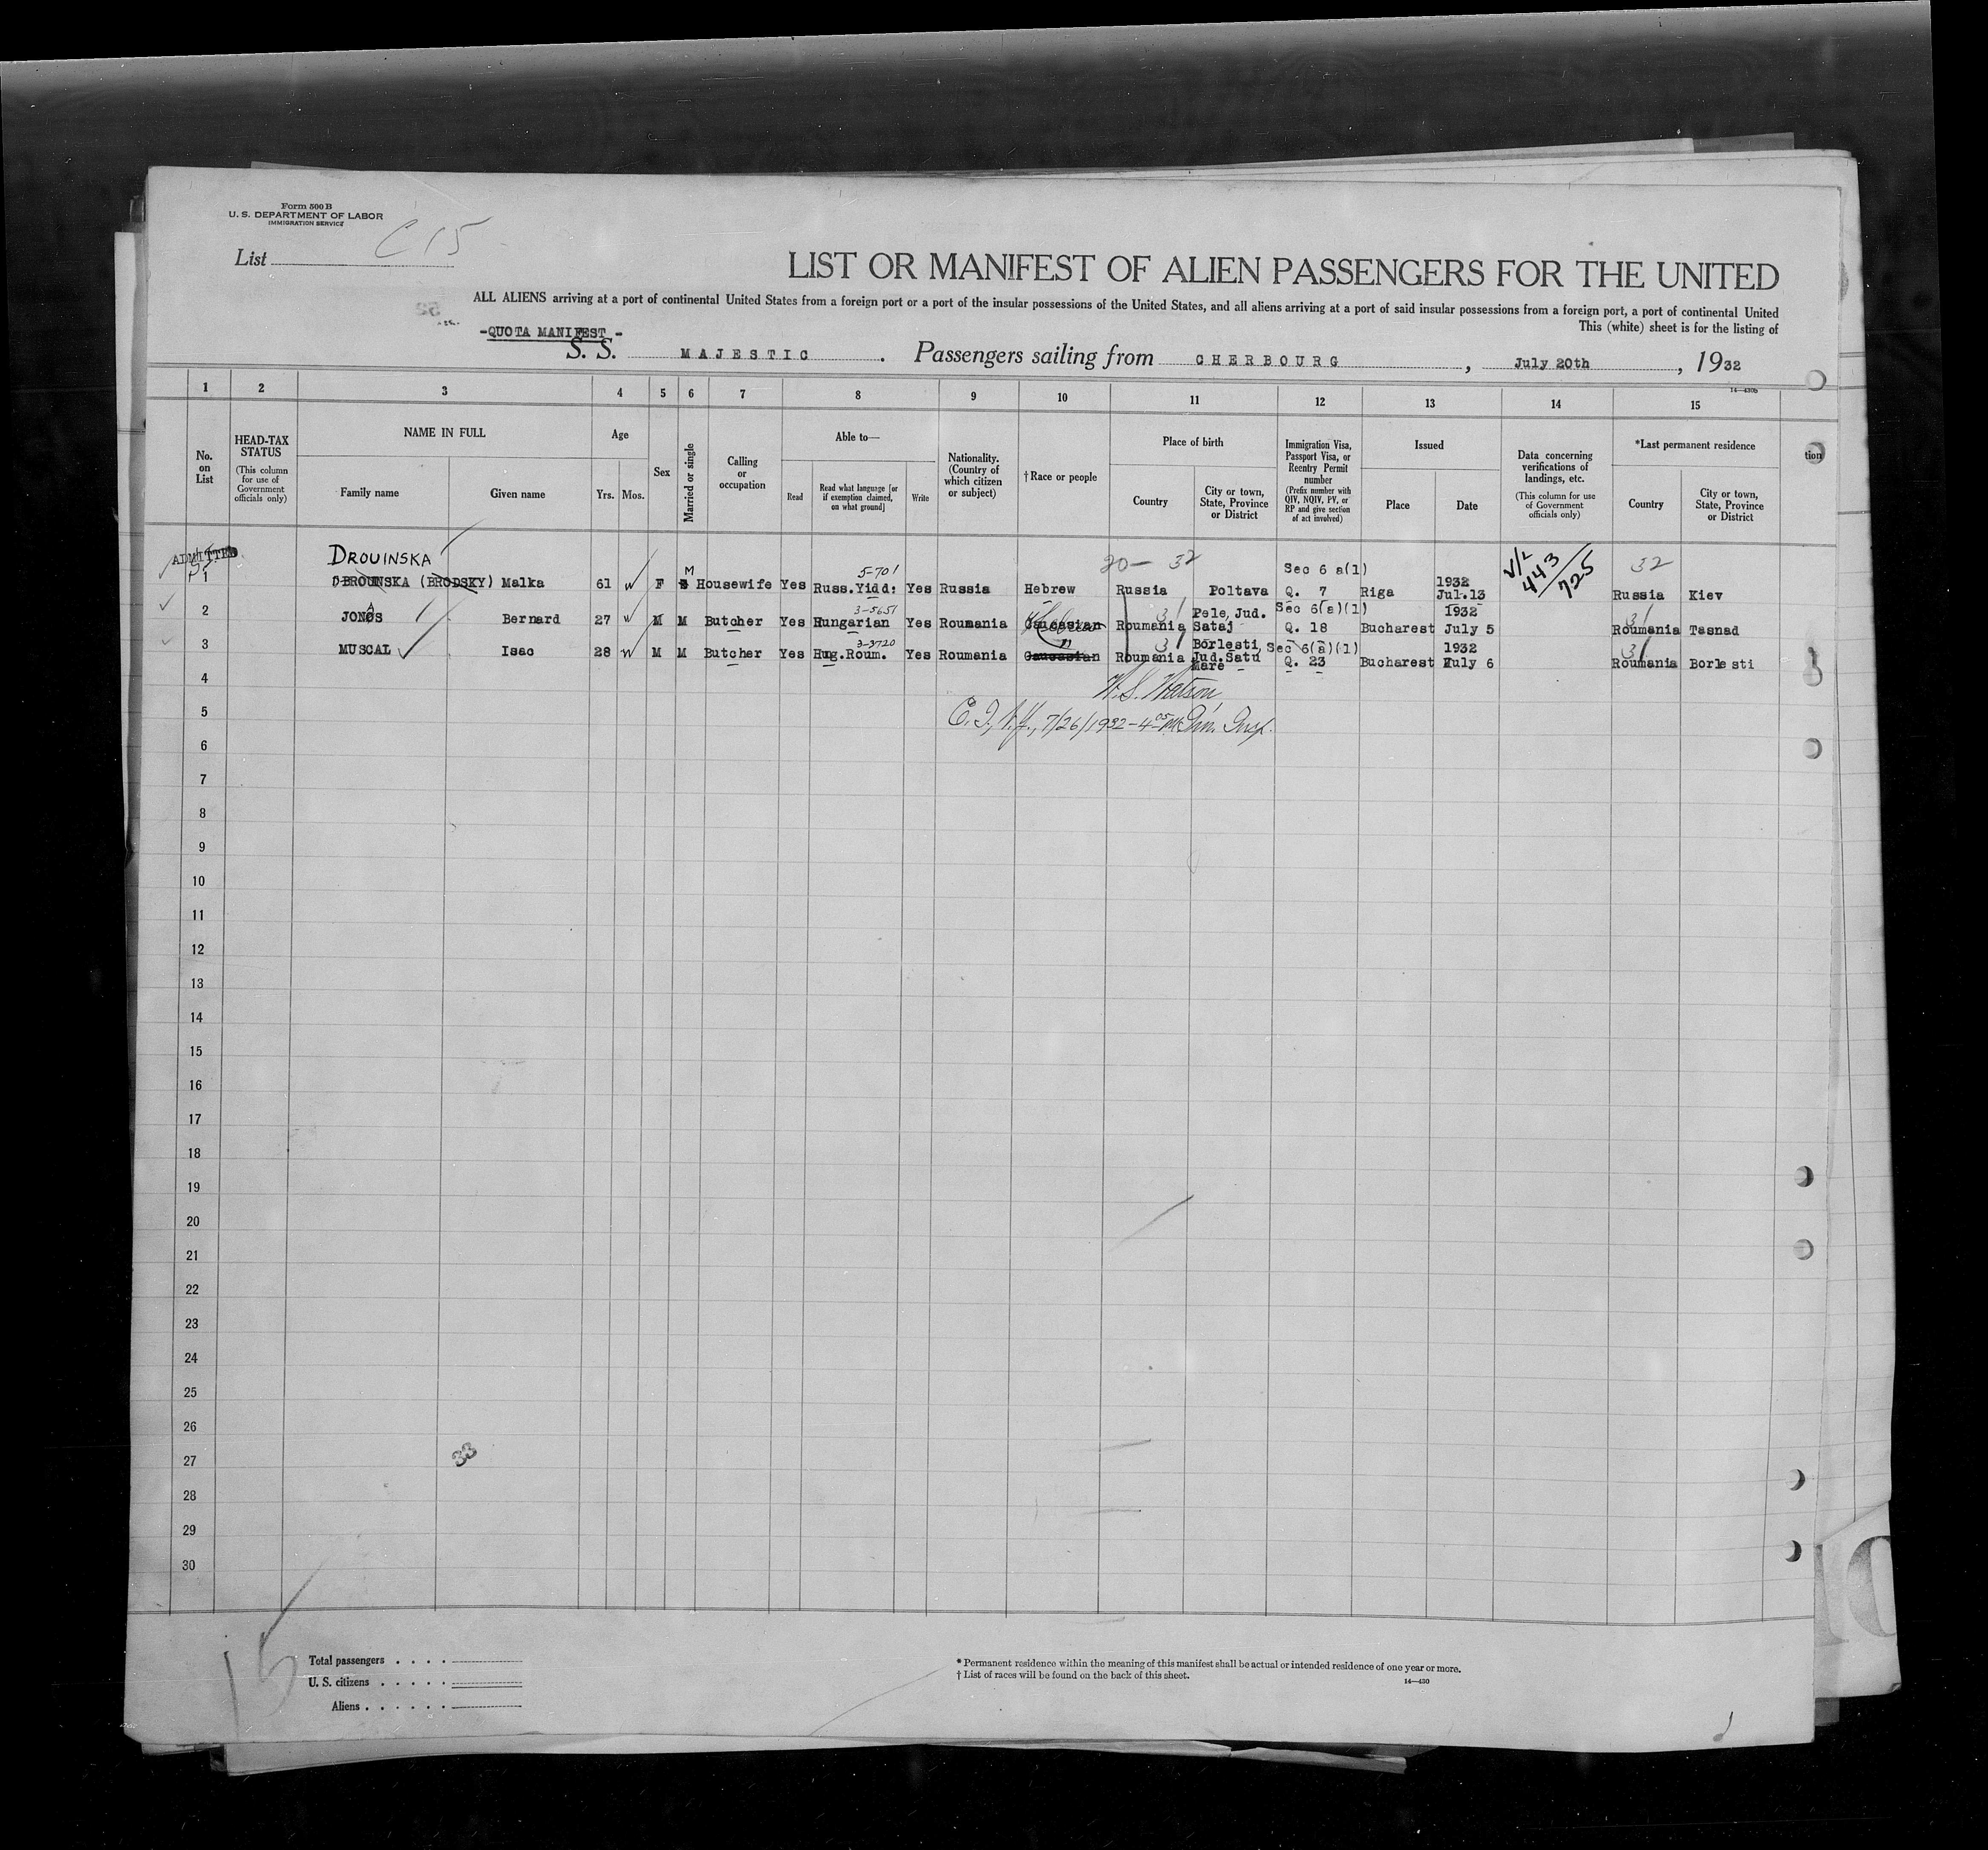 Form 500 B
U. S. DEPARTMENT OF LABOR
IMMIGRATION SERVICE
C 15
List
LIST OR MANIFEST OF ALIEN PASSENGERS FOR THE UNITED
ALL ALIENS arriving at a port of continental United States from a foreign port or a port of the insular possessions of the United States, and all aliens arriving at a port of said insular possessions from a foreign port, a port of continental United
This (white) sheet is for the listing of
-QUOTA MANIFEST-
S. S. MAJESTIC. Passengers sailing from CHERBOURG, July 20th, 1932
14—430b
1 2 3 4 5 6 7 8 9 10 11 12 13 14 15
No. on List
HEAD-TAX STATUS (This column for use of Government officials only)
NAME IN FULL
Family name Given name
Age
Yrs. Mos.
Sex
Married or single
Calling or occupation
Able to—
Read
Read what language [or if exemption claimed, on what ground]
Write
Nationality. (Country of which citizen or subject)
†Race or people
Place of birth
Country
City or town, State, Province or District
Immigration Visa, Passport Visa, or Reentry Permit number (Prefix number with QIV, NQIV, PV, or RP and give section of act involved)
Issued
Place Date
Data concerning verifications of landings, etc. (This column for use of Government officials only)
*Last permanent residence
Country
City or town, State, Province or District
tion
ADMITTED
DROUINSKA
5-701
M
20— 32
Sec 6 a(1)
V/2 443/725
32
1 (BRODSKY) Malka 61 W F Housewife Yes Russ.Yidd: Yes Russia Hebrew Russia Poltava Q. 7 Riga 1932 Jul.13 Russia Kiev
3-5651
2 JONAS Bernard 27 W M M Butcher Yes Hungarian Yes Roumania Caucasian Hebrew Roumania 31 Pele, Jud. Sataj Sec 6(a)(1) Q. 18 Bucharest 1932 July 5 31 Roumania Tasnad
3-3720
3 MUSCAL Isac 28 W M M Butcher Yes Hug.Roum. Yes Roumania Caucasian " Roumania 31 Borlesti, Jud.Satu Mare Sec 6(a)(1) Q. 23 Bucharest 1932 July 6 31 Roumania Borlesti
4
W. S. Watson,
5
E. I., N.Y., 7/26/1932 — 4 05 PM Imm. Insp.
6
7
8
9
10
11
12
13
14
15
16
17
18
19
20
21
22
23
24
25
26
27
33
28
29
30
15
Total passengers
U. S. citizens
Aliens
* Permanent residence within the meaning of this manifest shall be actual or intended residence of one year or more.
† List of races will be found on the back of this sheet.
14—430